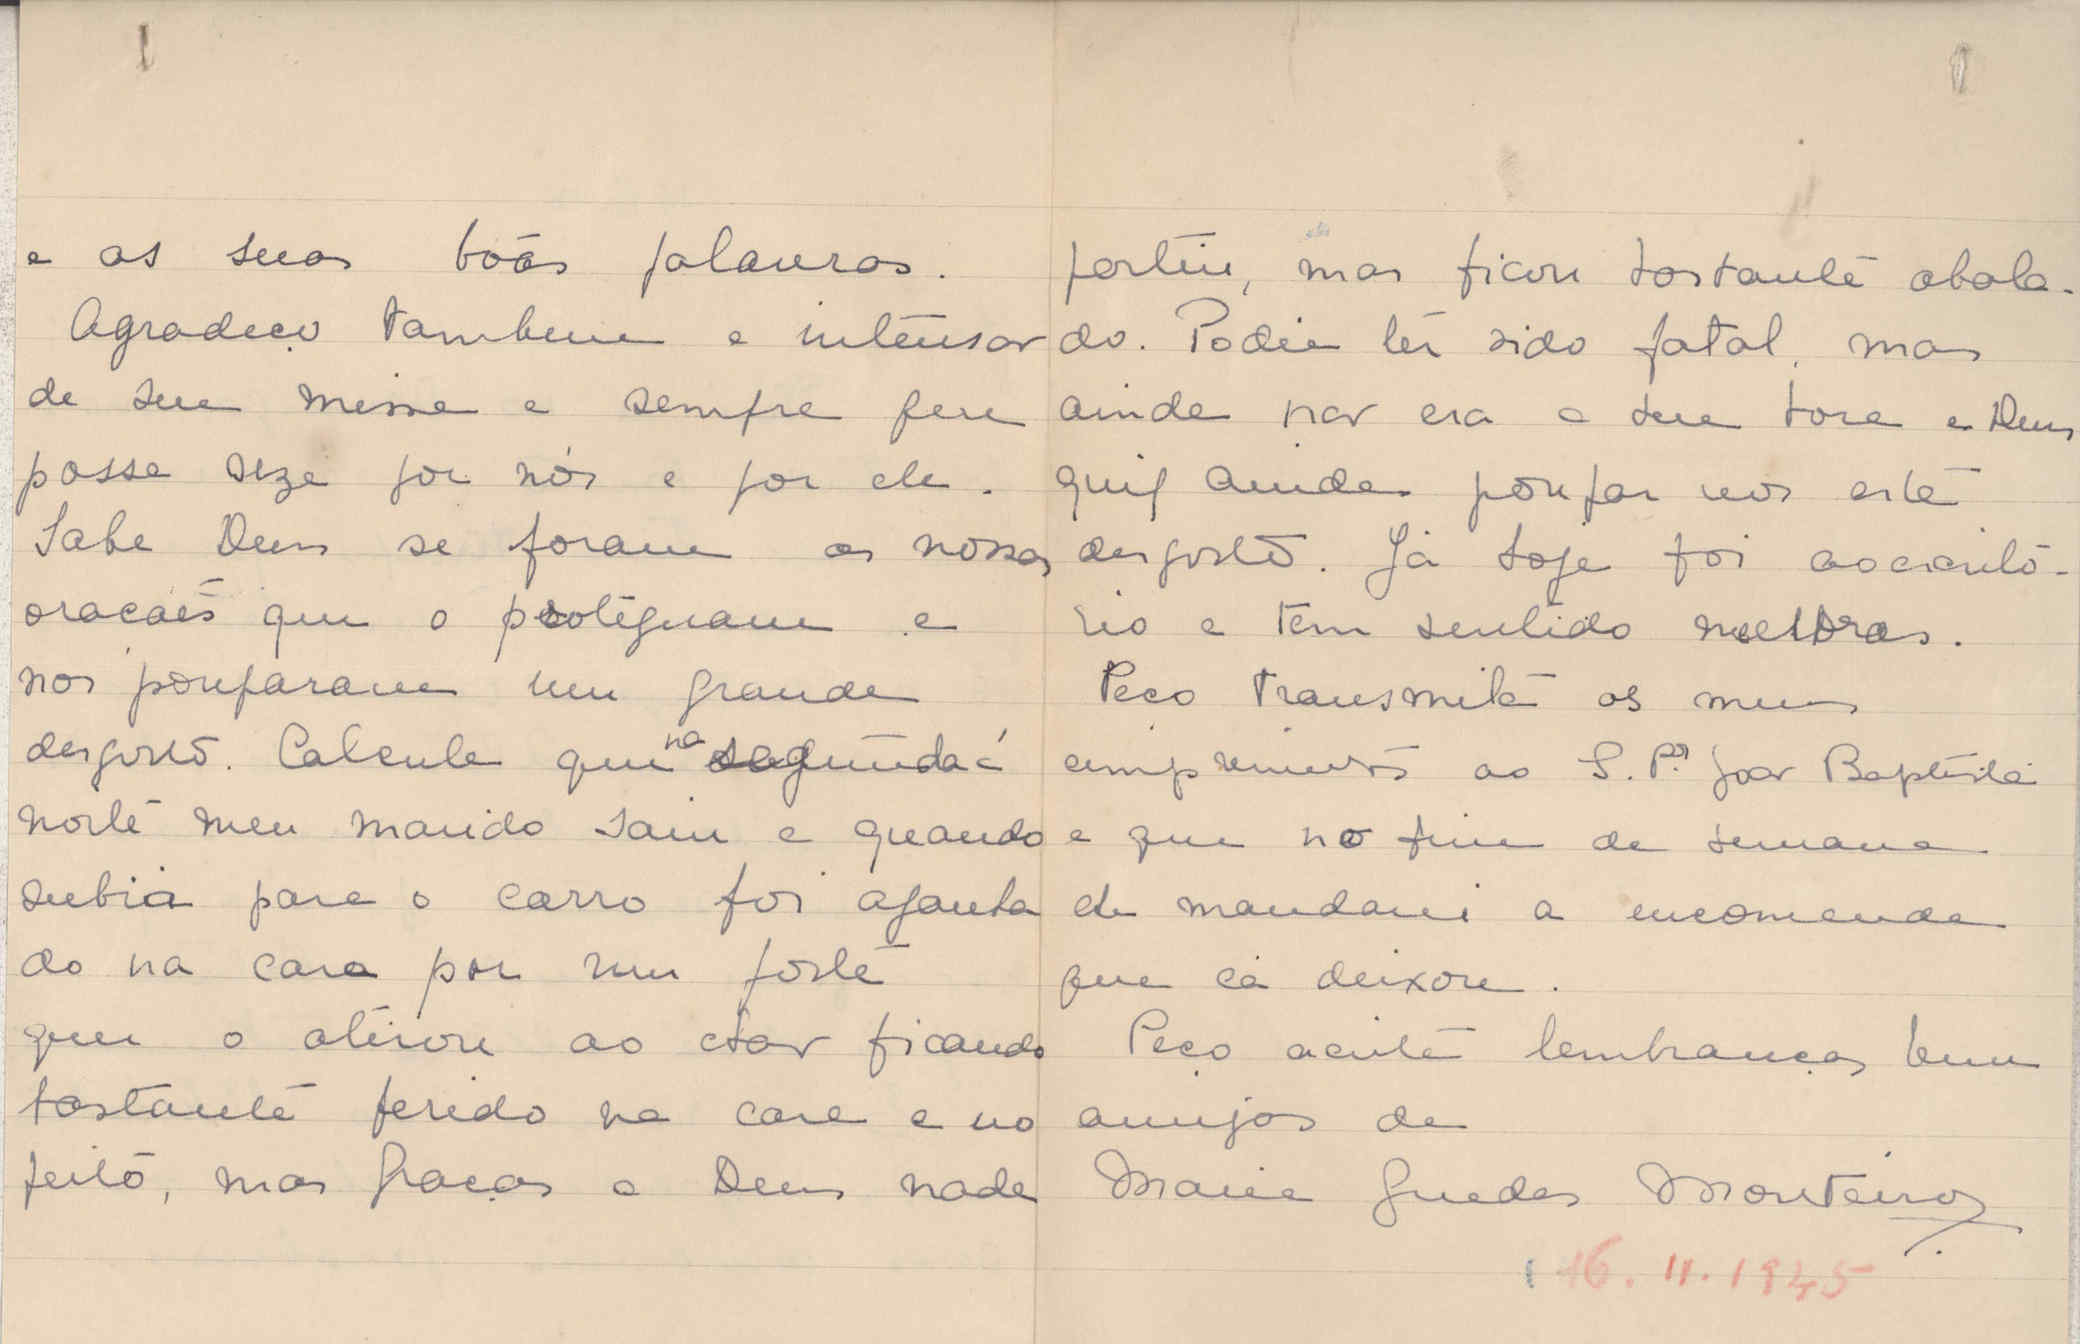 e as suas boas palavras.
Agradeço tambem a intensão
de sua missa e sempre que
possa reze por nós e por ele.
Sabe Deus se foram as nossas
oracões que o protegeram e
nos pouparam um grande
desgosto. Calcule que na segunda á
noite meu marido saiu e quando
subia para o carro foi apanha
do na cara por um poste
que o atirou ao chão ficando
bastante ferido na cara e no
peito, mas graças a Deus nada
partiu, mas ficou bastante abala-
do. Podia ter sido fatal, mas
ainda não era a sua hora e Deus
quis ainda poupar nos este
desgosto. Já hoje foi ao escritó-
rio e tem sentido melhoras.
Peço transmita os meus
cumprimentos ao S. P.or João Baptista
e que no fim da semana
ele mandarei a encomenda
que cá deixou.
Peço aceite lembranças bem
amigas de
Maria Guedes Monteiro
16.11.1945